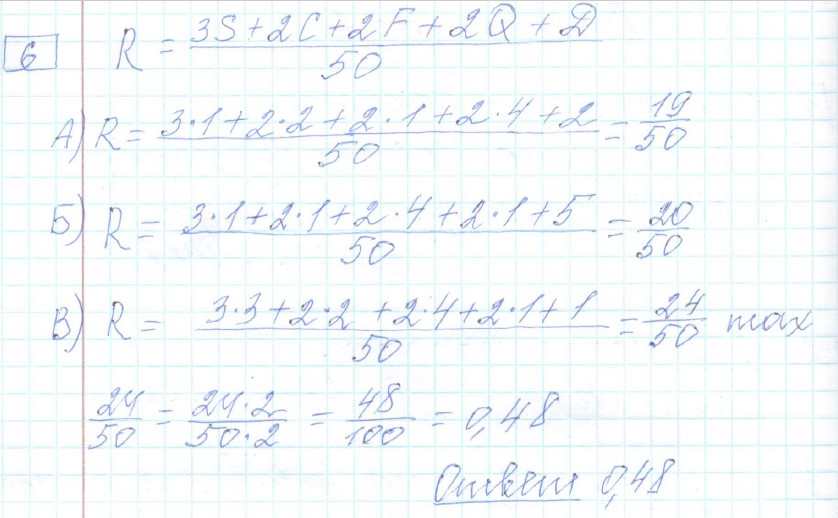 6 R = (3S + 2C + 2F + 2Q + D) / 50
А) R = (3·1 + 2·2 + 2·1 + 2·4 + 2) / 50 = 19/50
Б) R = (3·1 + 2·1 + 2·4 + 2·1 + 5) / 50 = 20/50
В) R = (3·3 + 2·2 + 2·4 + 2·1 + 1) / 50 = 24/50 max
24/50 = (24·2) / (50·2) = 48/100 = 0,48
Ответ 0,48